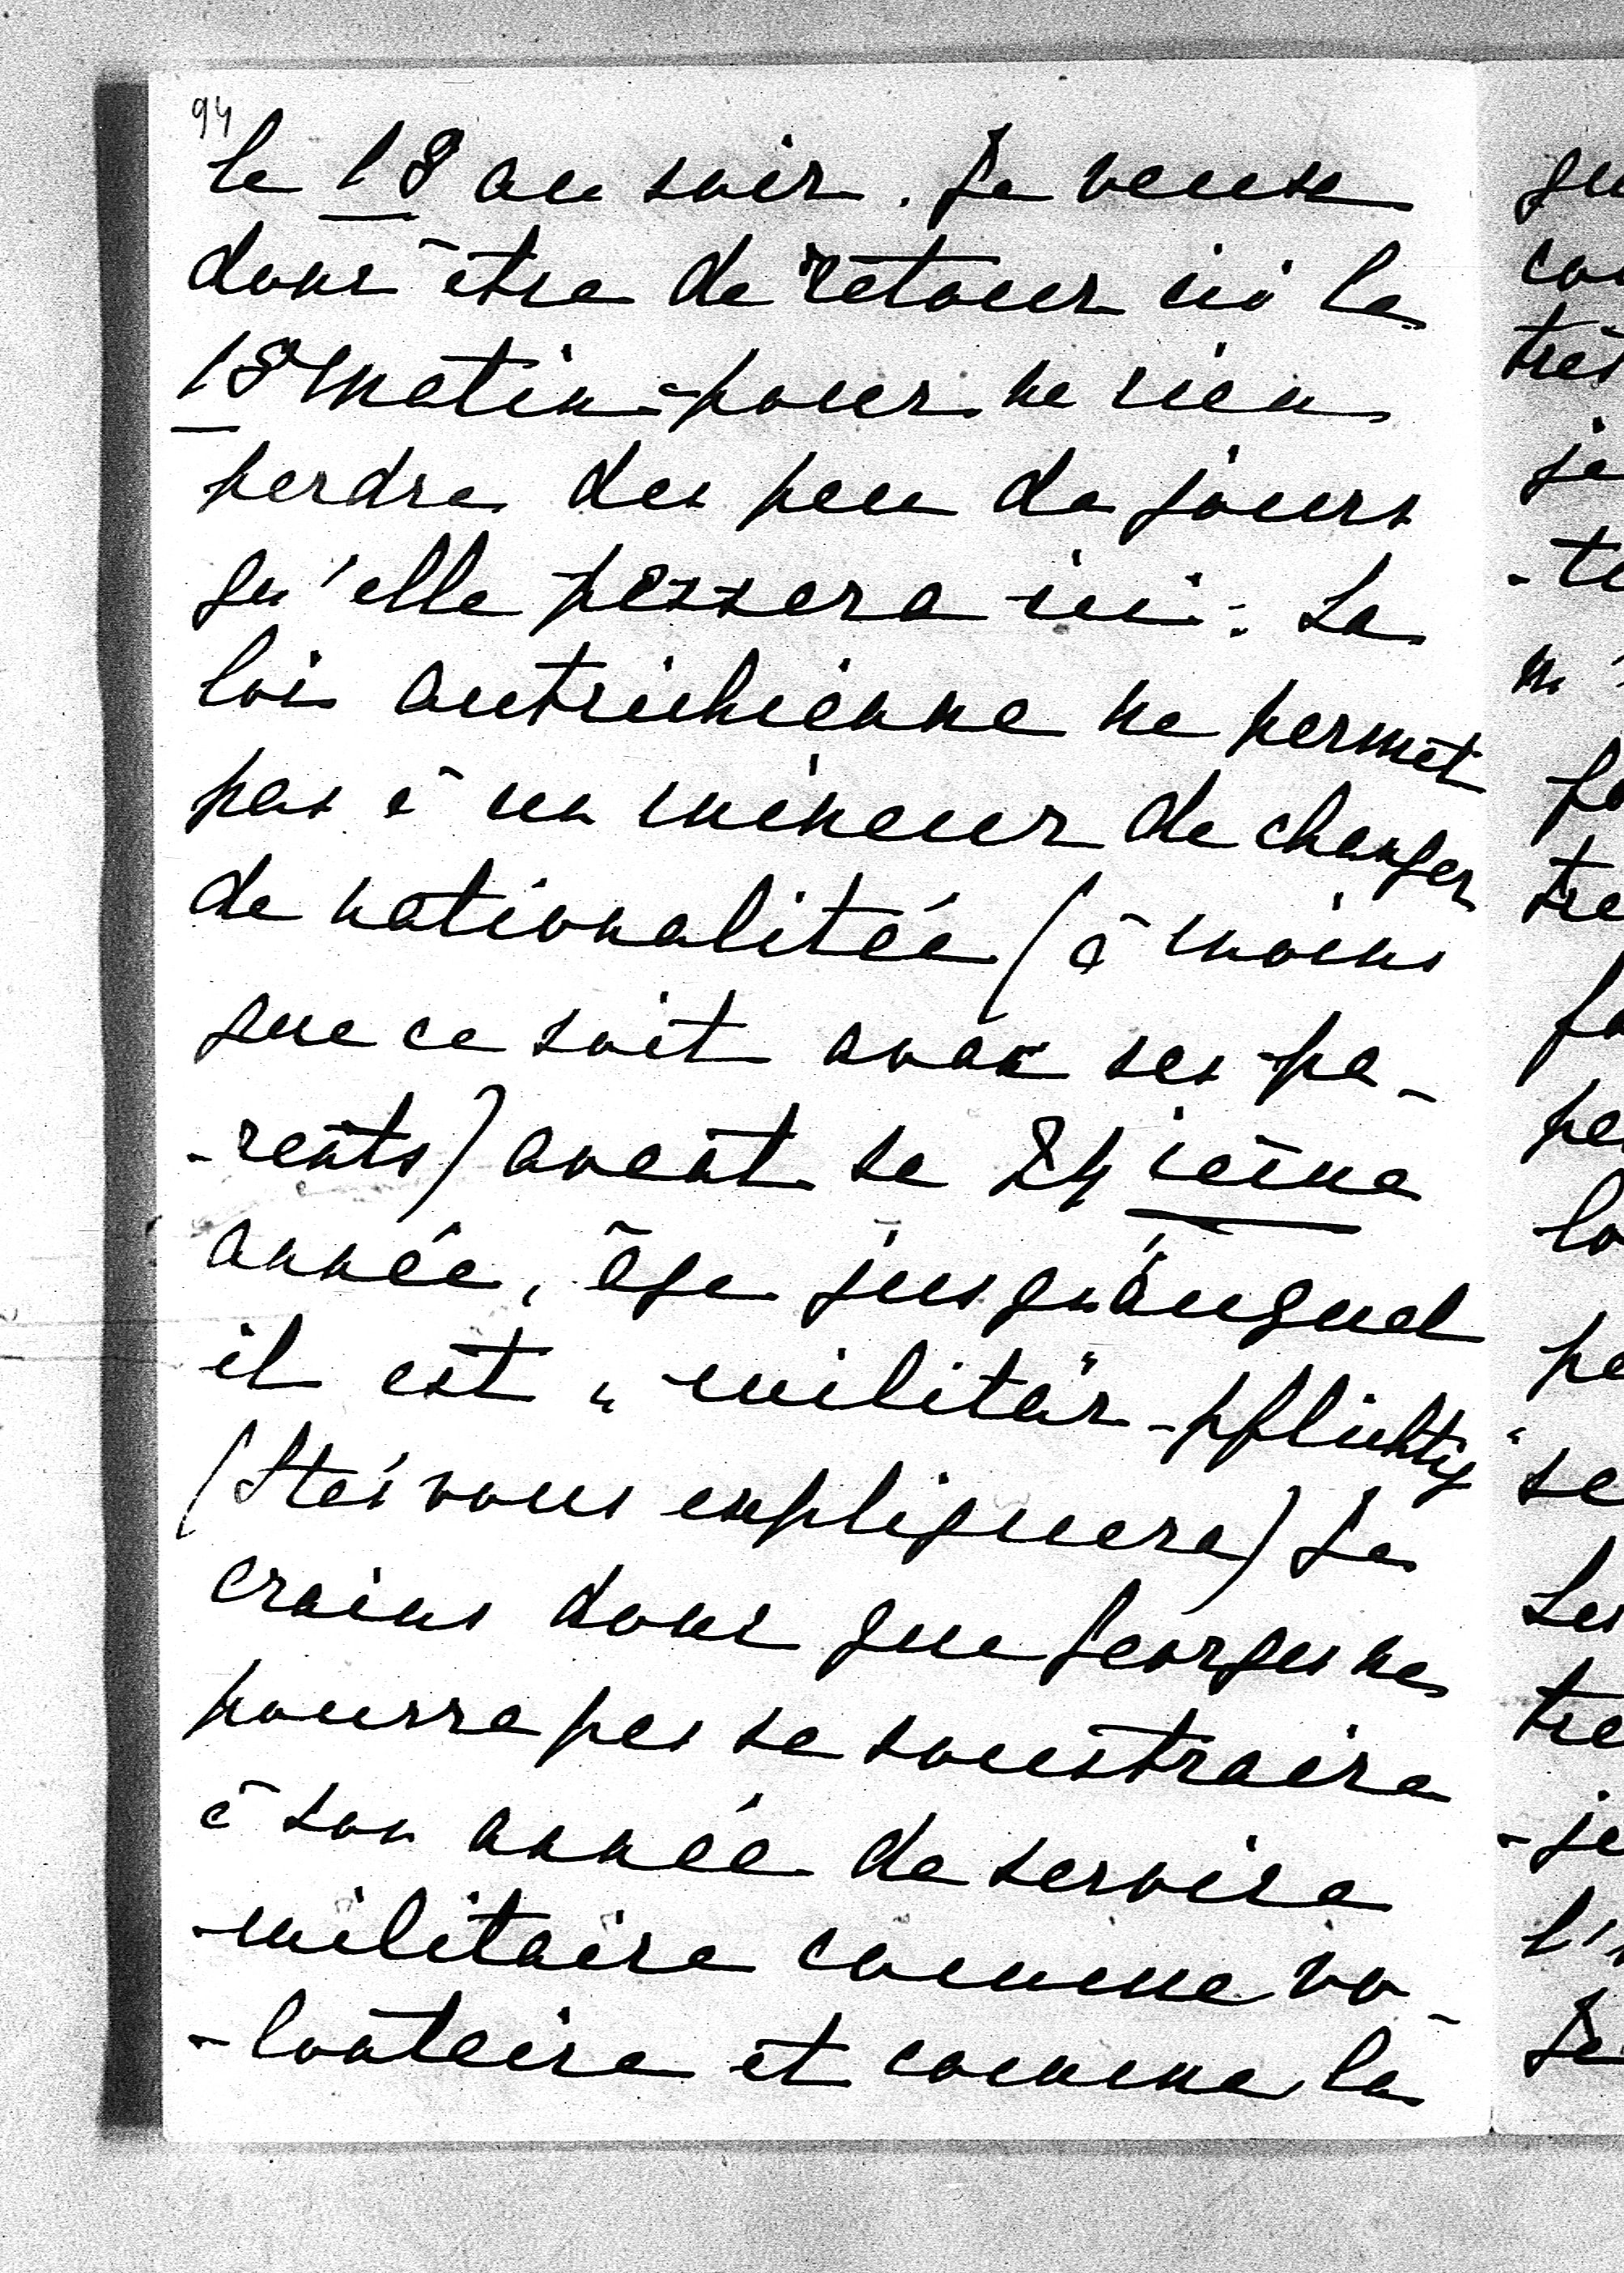 94
le 18 au soir. Je veux
donc être de retour ici le
18 matin - pour ne rien
perdre des peu de jours
qu'elle passera ici. La
loi autrichienne ne permet
pas à un mineur de changer
de nationalitée (à moins
que ce soit avec ses pa-
-rents) avant sa 24 ième
année, âge jusqu'auquel
il est „militär-pflichtig“
(Stei vous expliquera) Je
crains donc que Georges ne
pourra pas se soustraire
à son année de service
militaire comme vo-
-lontaire et comme la
qu
co
très
je
-te
m'
tre
pe
lo
pe
se
Les
tre
-je
l'
Je